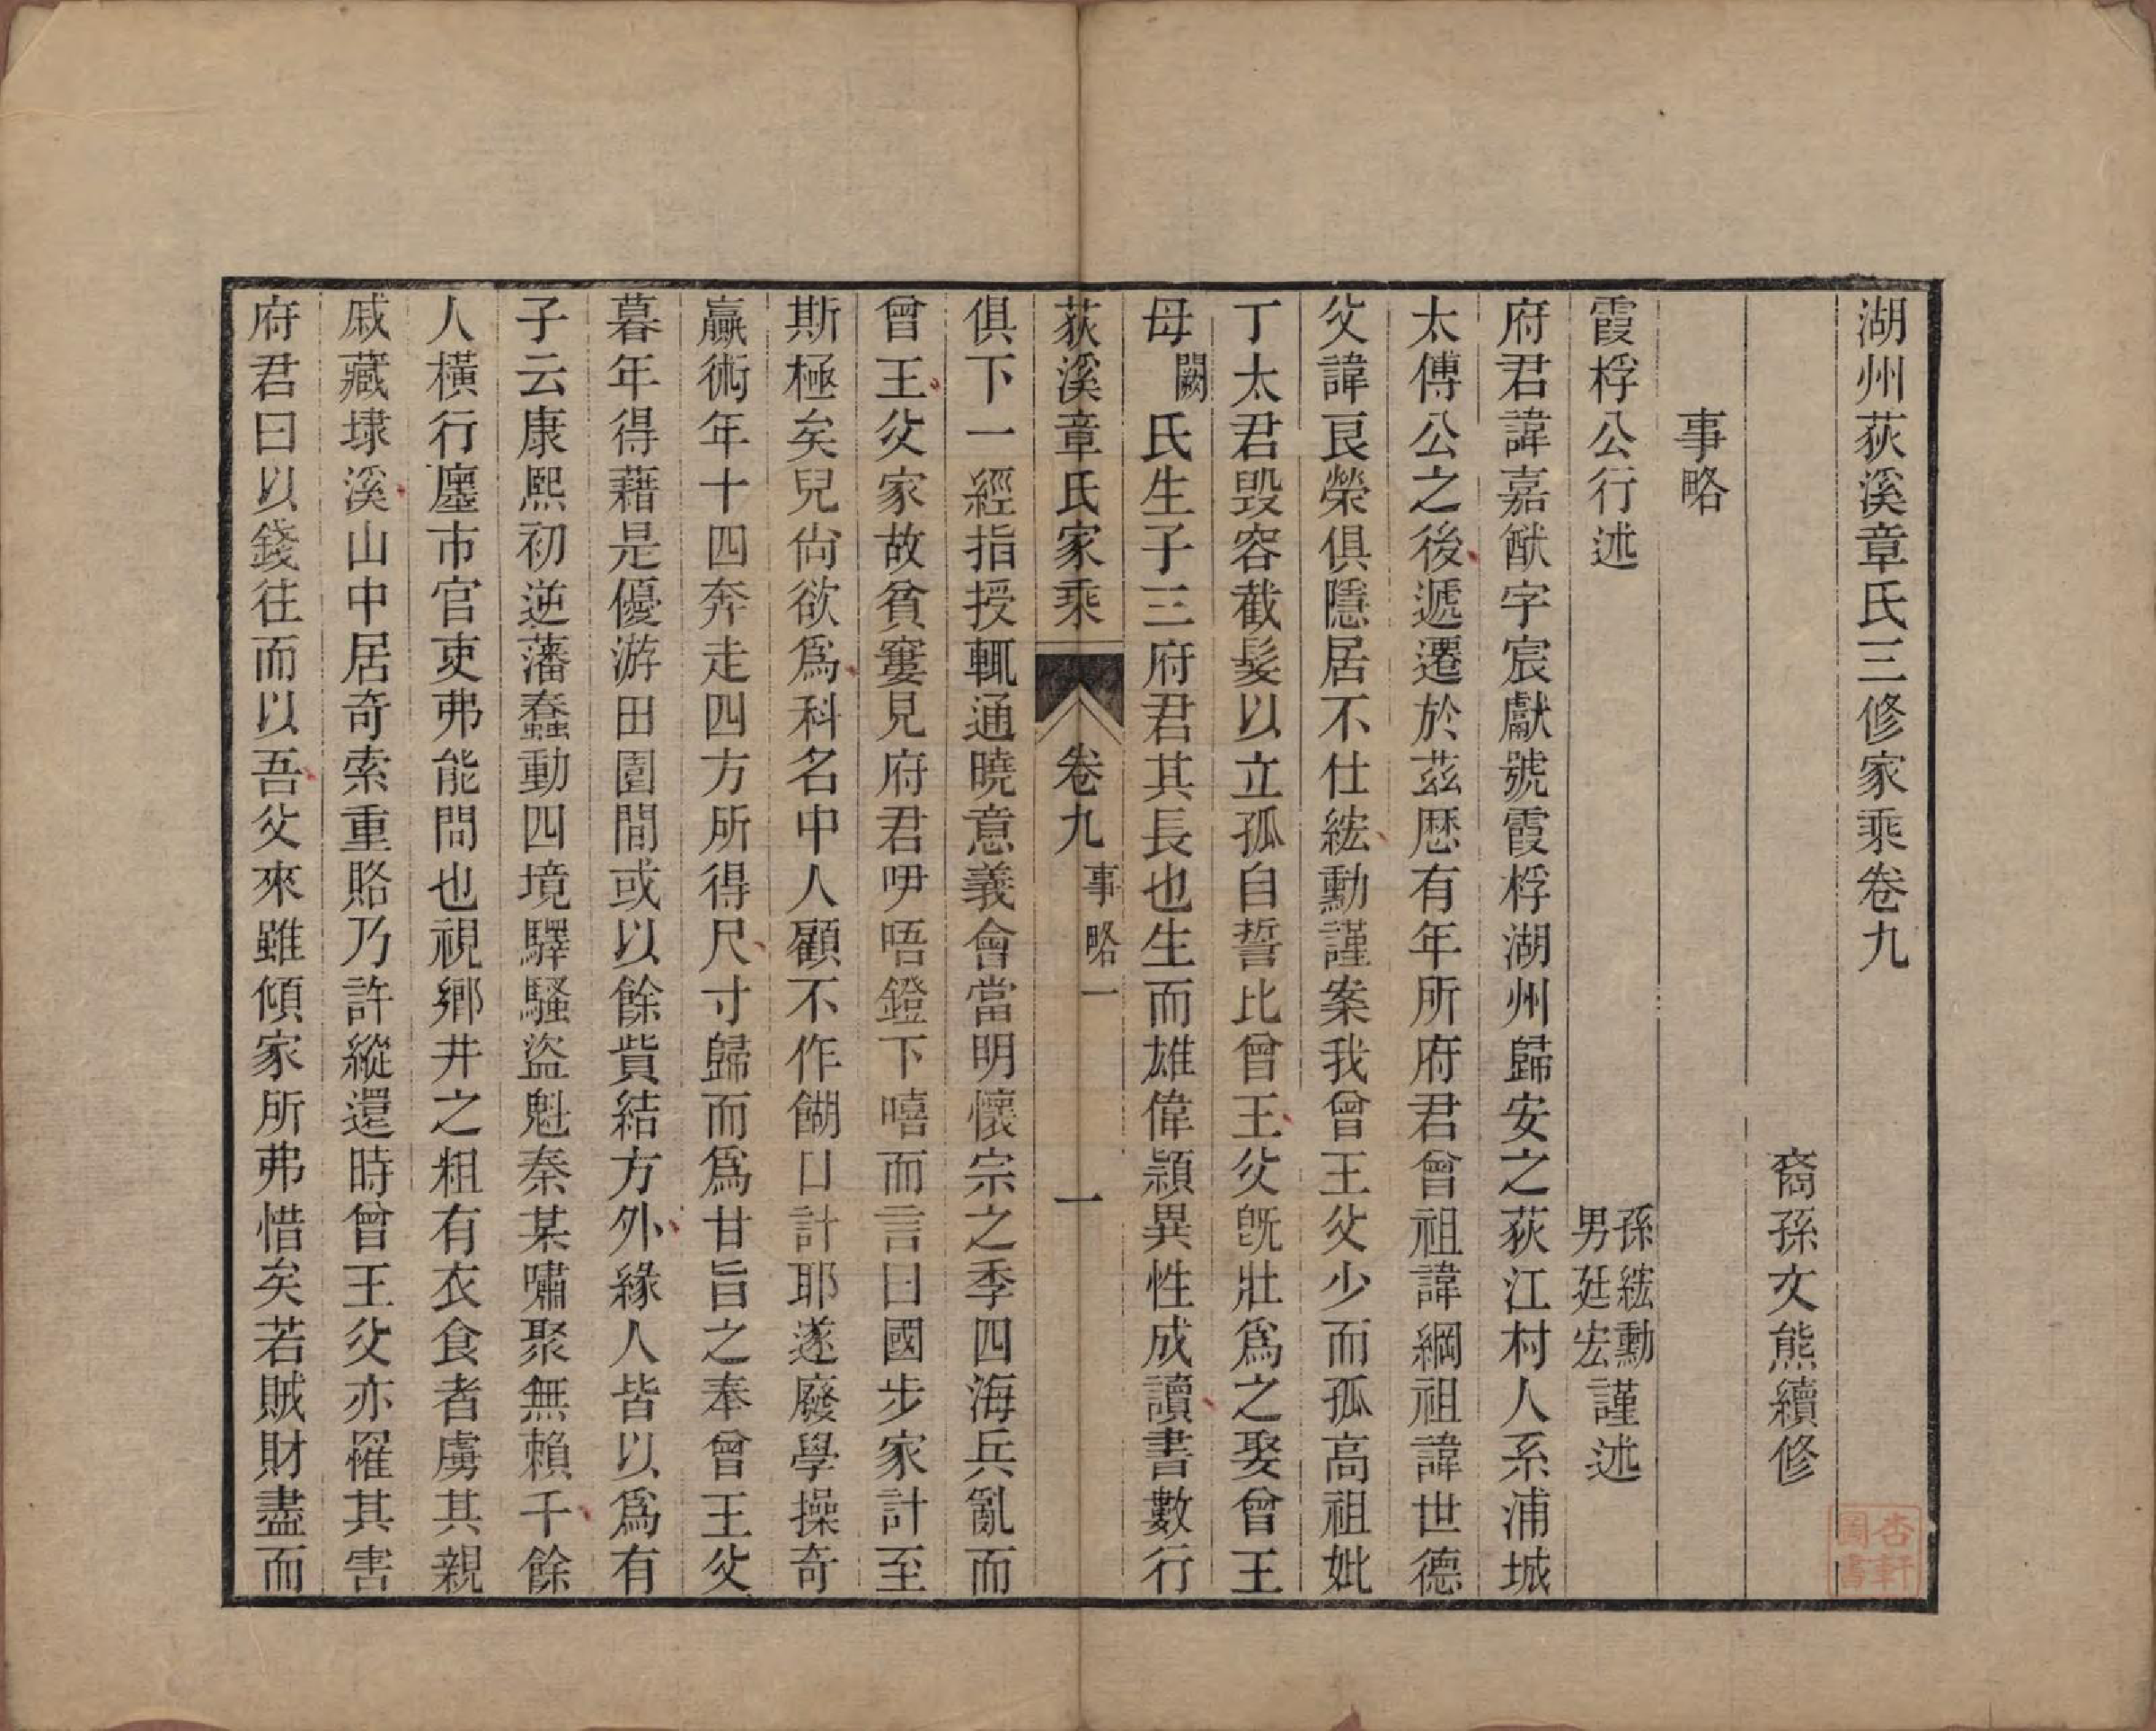 湖州荻溪章氏三修家乘卷九
裔孫文熊續修
事略
霞桴公行述
孫綋勳
男廷宏謹述
府君諱嘉猷字宸獻號霞桴湖州歸安之荻江村人系浦城
太傅公之後遞遷於茲歷有年所府君曾祖諱綱祖諱世德
父諱艮榮俱隱居不仕綋勳謹案我曾王父少而孤高祖妣
丁太君毀容截髮以立孤自誓比曾王父旣壯爲之娶曾王
母闕氏生子三府君其長也生而雄偉穎異性成讀書數行
荻溪章氏家乘
卷九
事略一
一
俱下一經指授輒通曉意義會當明懷宗之季四海兵亂而
曾王父家故貧窶見府君咿唔鐙下嘻而言曰國步家計至
斯極矣兒尙欲爲科名中人顧不作餬口計耶遂廢學操奇
贏術年十四奔走四方所得尺寸歸而爲甘旨之奉曾王父
暮年得藉是優游田園間或以餘貲結方外緣人皆以爲有
子云康熙初逆藩蠢動四境驛騷盜魁秦某嘯聚無賴千餘
人橫行廛市官吏弗能問也視鄉井之粗有衣食者虜其親
戚藏埭溪山中居奇索重賂乃許縱還時曾王父亦罹其害
府君曰以錢往而以吾父來雖傾家所弗惜矣若賊財盡而
杏軒
圖書